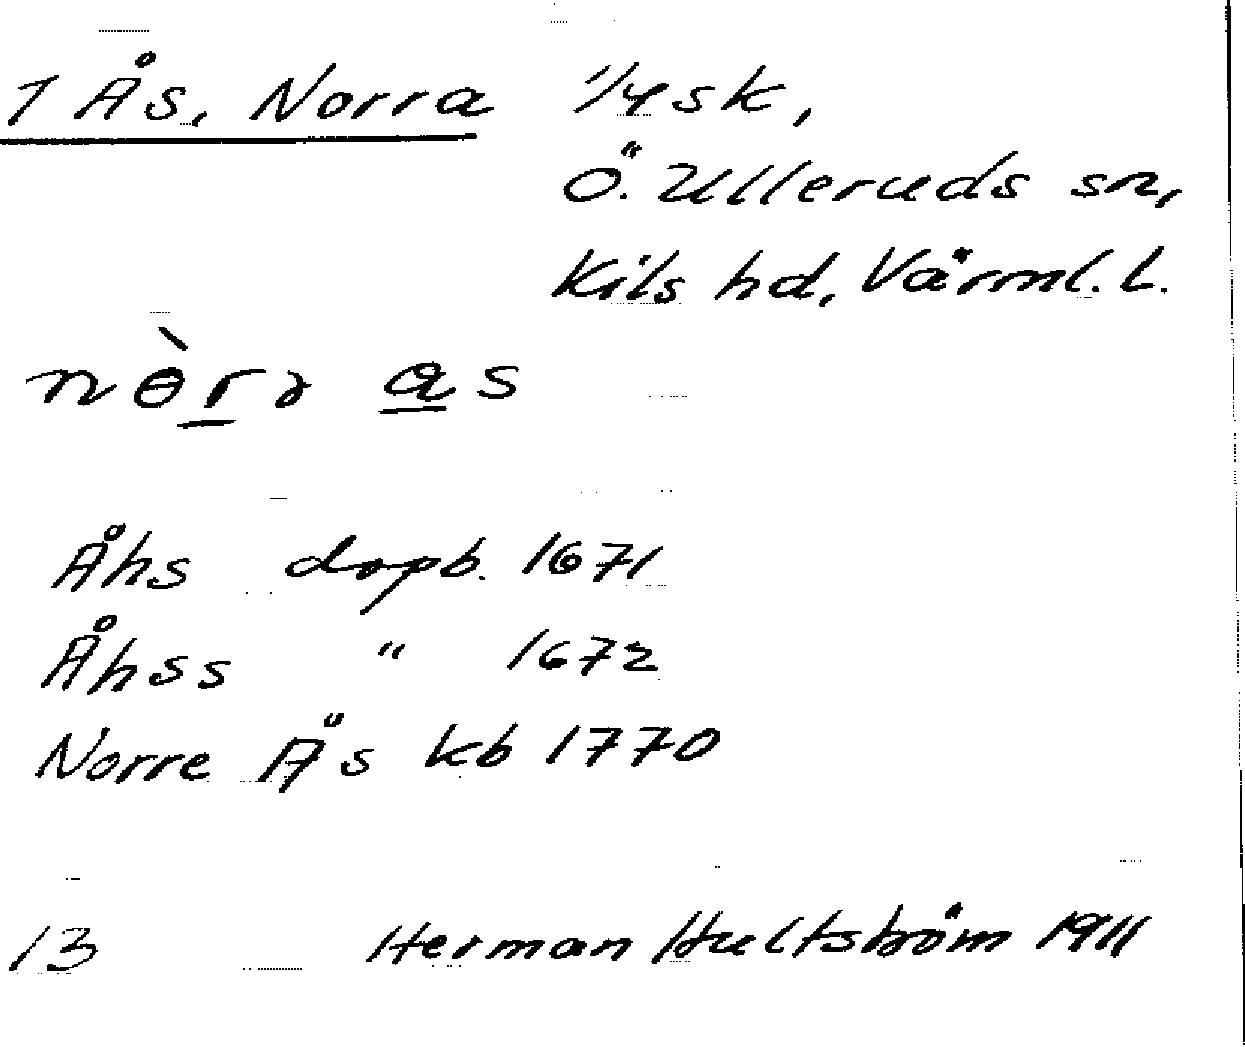 1 Ås, Norra 1/4 sk,
Ö. Ulleruds sn,
Kils hd, Värml. L.
nɵ̀rɜ as
Åhs dopb. 1671
Åhss " 1672
Norre Ås kb 1770
13 Herman Hultström 1911